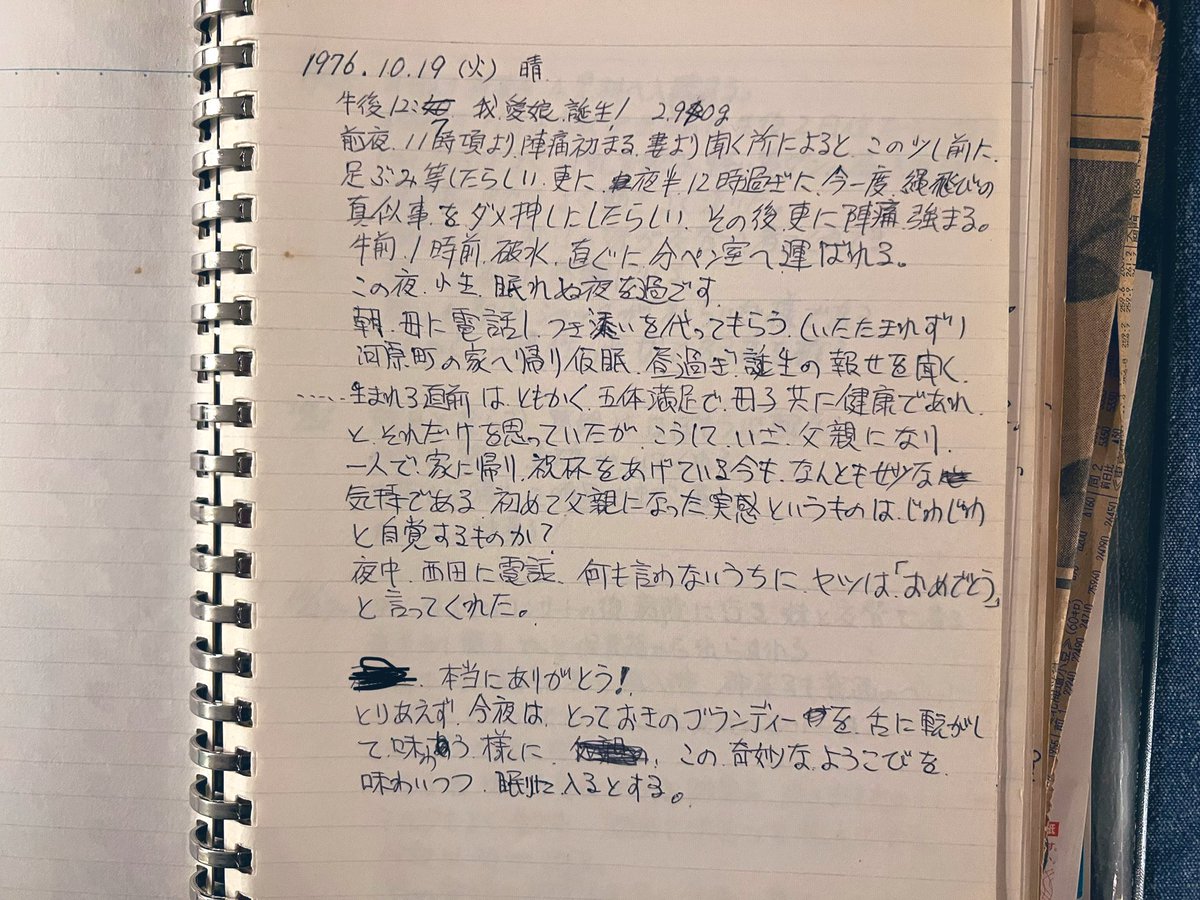 1976.10.19(火) 晴.
午後12: 我.愛娘.誕生! 2.9 0g
前夜.11時頃より.陣痛初まる.妻より聞く所によると.この少し前に.
足ぶみ等したらしい.更に.夜半12時過ぎに.今一度.縄飛びの
真似事をダメ押しにしたらしい.その後.更に陣痛.強まる。
午前.1時前.破水.直ぐに.分ベン室へ運ばれる。
この夜.小生.眠れぬ夜を過です.
朝.母に電話しつき添いを代ってもらう.(いたたまれず)
河原町の家へ帰り仮眠.昼過ぎ.誕生の報せを聞く.
.....生まれる直前は.ともかく.五体満足で.母子共に健康であれ.
と.それだけを思っていたが.こうして.いざ.父親になり.
一人で.家に帰り.祝杯をあげている今も.なんとも妙な
気持である.初めて父親になった.実感というものは.じわじわ
と自覚するものか?
夜中.西田に電話.何も言わないうちに.ヤツは「おめでとう」
と言ってくれた。
.本当にありがとう!.
とりあえず.今夜は.とっておきのブランディーを.舌に転がし
て.味わう様に.この.奇妙な.ようこびを.
味わいつつ.眠りに入るとする。
回2
前日比
(60キロ)